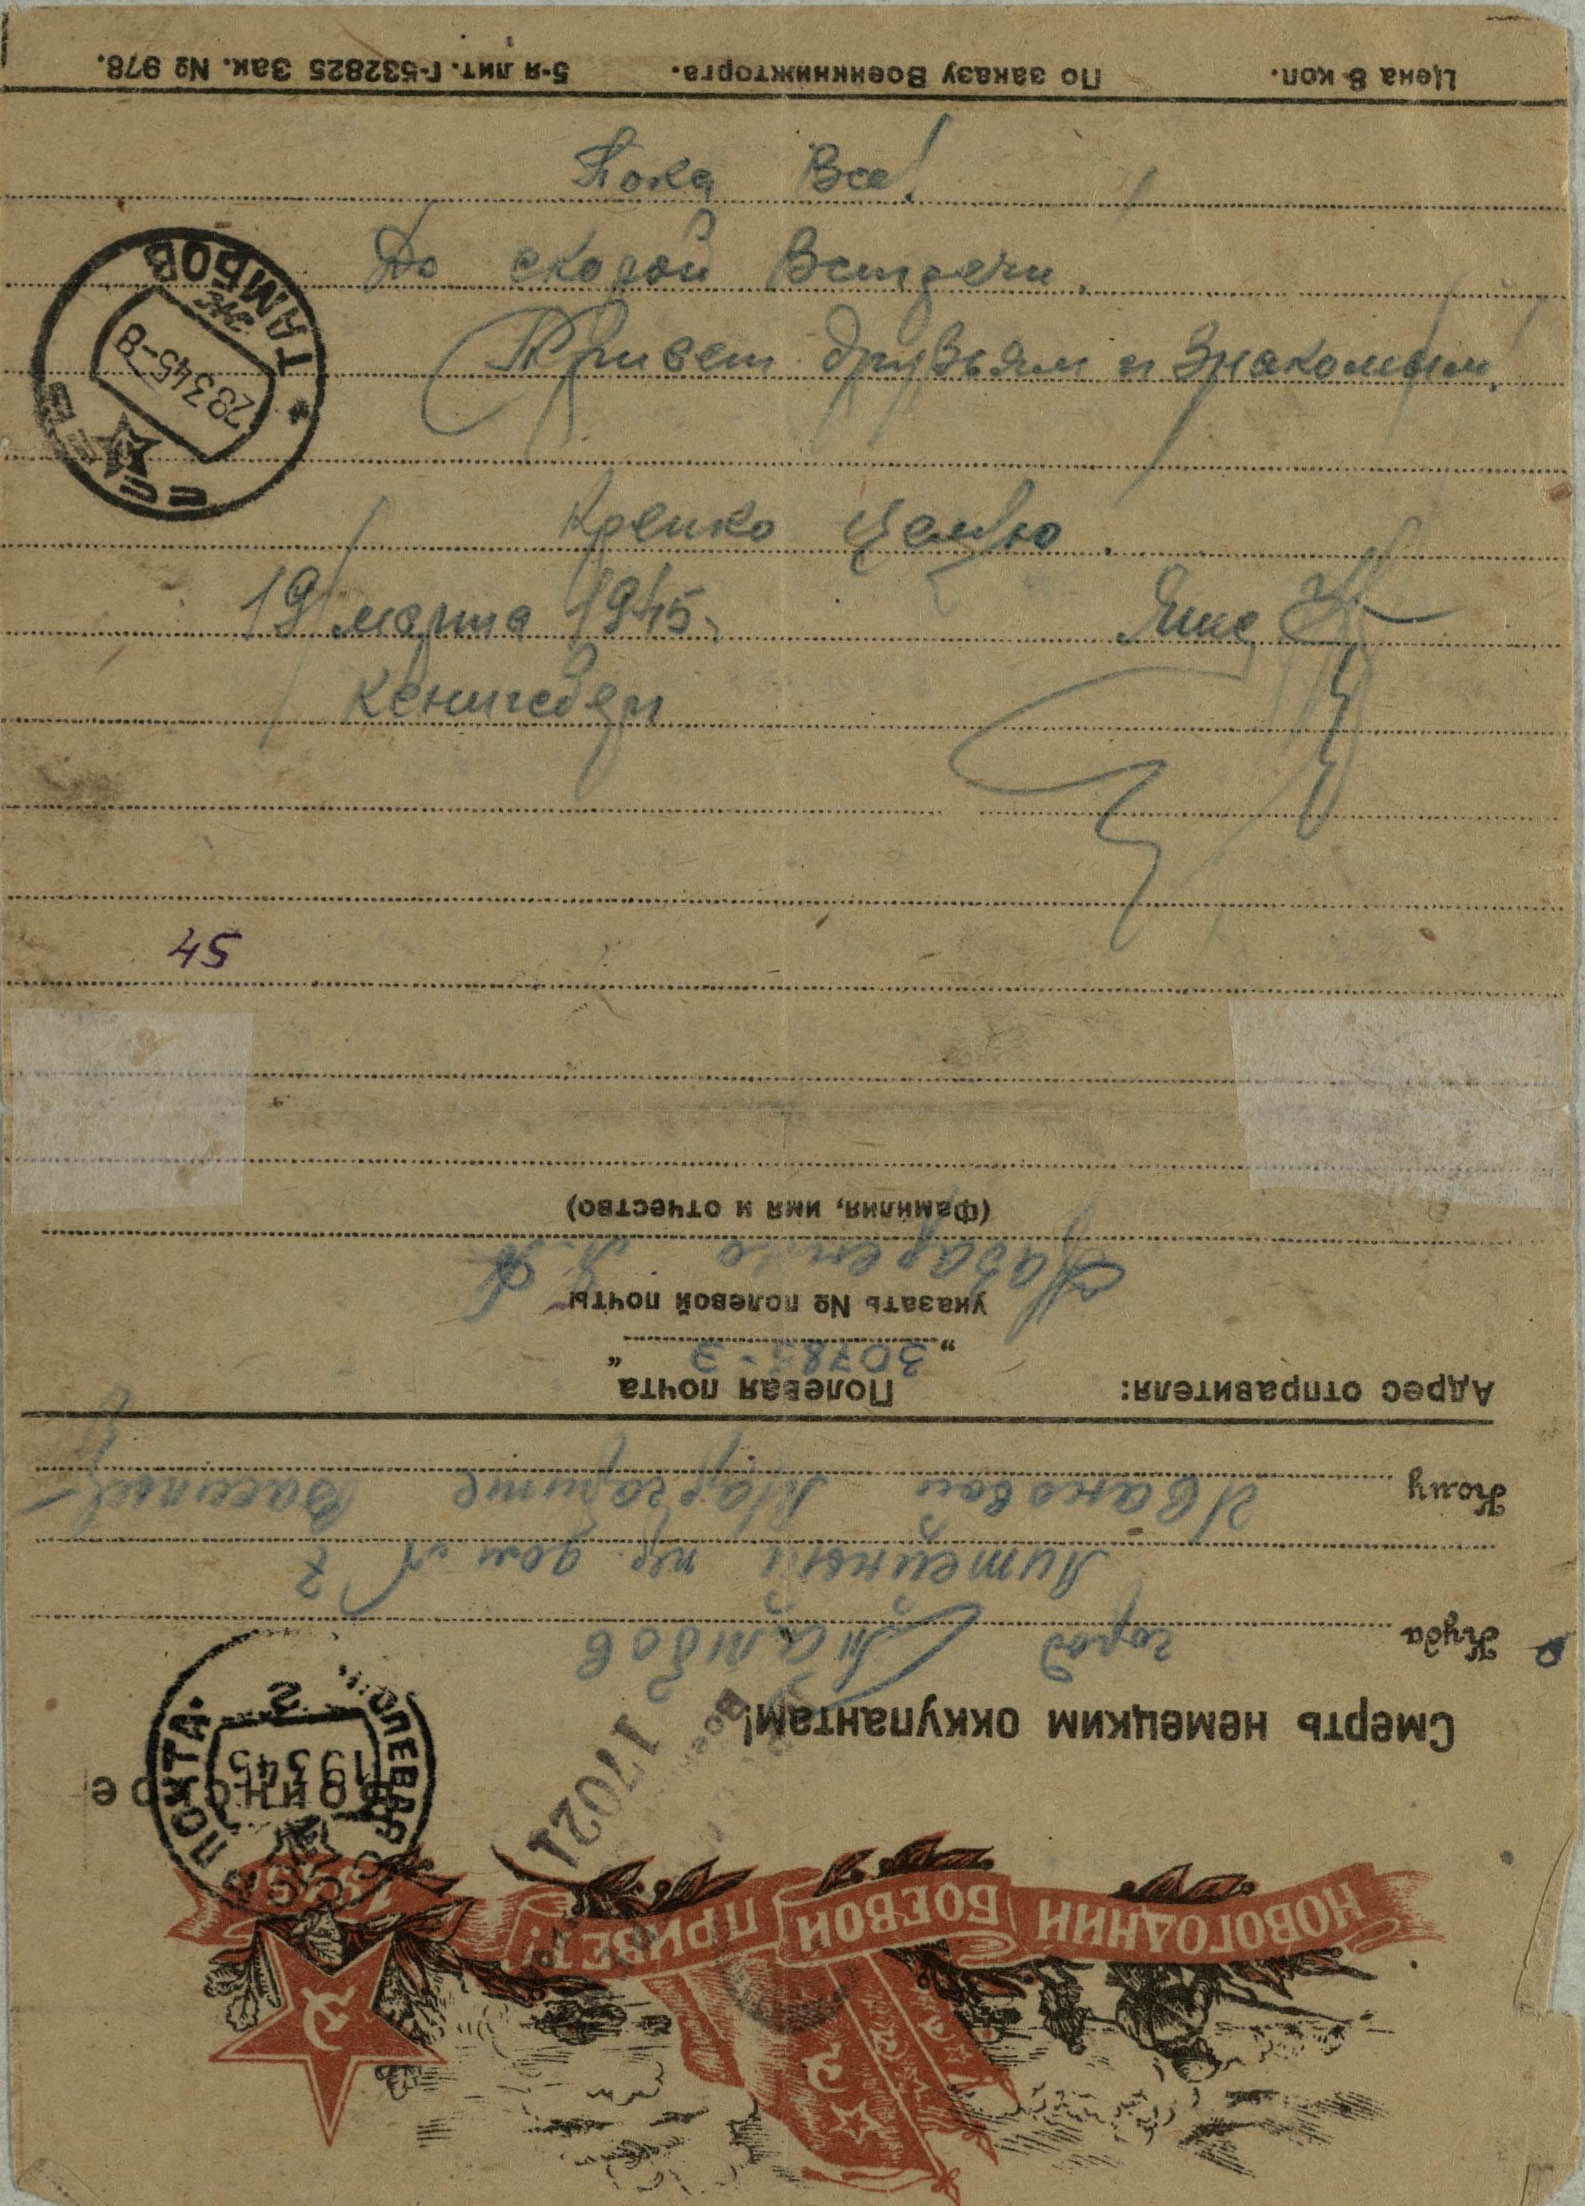 Цена 8 коп. По заказу Воениижторга. 5-я лит. Г-532825 Зак. № 978.
Пока Все!
До скорой Встречи.
Привет друзьям и Знакомым!
Крепко целую.
19/марта 1945. Яша
Кенигсберг
ТАМБОВ
28 3 45-8
СССР
45
НОВОГОДНИЙ БОЕВОЙ ПРИВЕТ!
Воинское
ПОЛЕВАЯ ПОЧТА
19 3 45
17021
Смерть немецким оккупантам!
Куда город Тамбов
Литейный пр. дом № 7
Кому Ивановой Маргарите
Адрес отправителя: Полевая почта
" 30785-З "
указать № полевой почты
(Фамилия, имя и отчество)